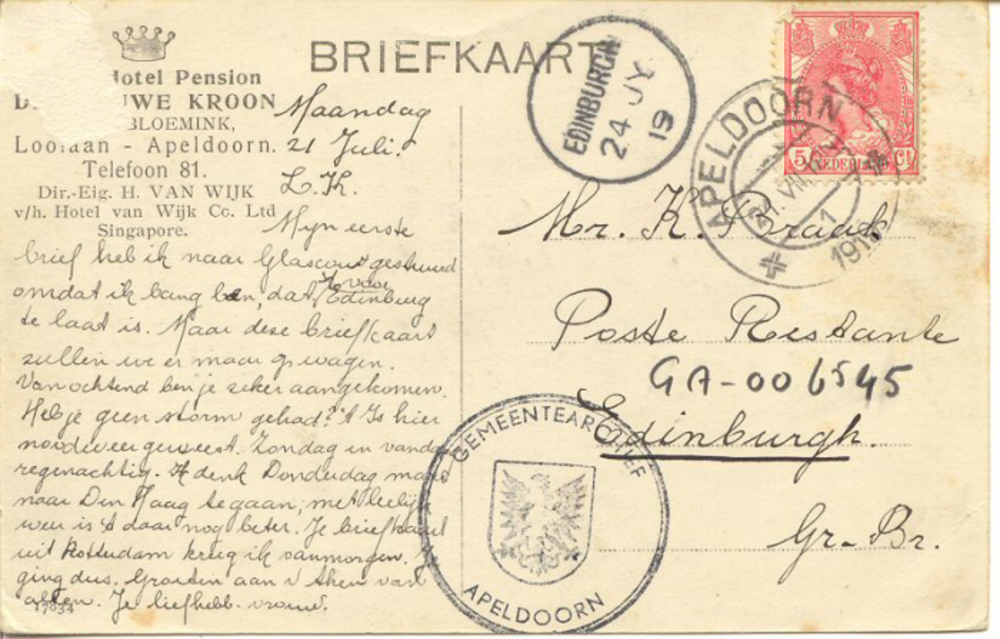 BRIEFKAART
Hotel Pension
UWE KROON
BLOEMINK,
Loolaan - Apeldoorn.
Telefoon 81.
Dir.-Eig. H. VAN WIJK
v/h. Hotel van Wijk Co. Ltd
Singapore.
Maandag
21 Juli.
L. K.
Mijn eerste
brief heb ik naar Glascow gestuurd
omdat ik bang ben, dat voor Edinburg
te laat is. Maar deze briefkaart
zullen we er maar op wagen.
Van ochtend ben je zeker aangekomen.
Heb je geen storm gehad? 't Is hier
noodweer geweest. Zondag en vandaag
regenachtig. Ik denk Donderdag maar
naar Den Haag te gaan; met leelijk
weer is 't daar nog beter. Je briefkaart
uit Rotterdam kreeg ik vanmorgen.
ging dus. Groeten aan v van
allen. Je liefhebb. vrouw.
17034
EDINBURGH
24 JY
19
APELDOORN
21 VII
1
5 Ct
NEDERLAND
Mr. K. Braak
Poste Restante
GA-006545
Edinburgh.
Gr-Br.
GEMEENTEARCHIEF
APELDOORN